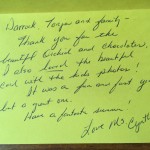 and family -
Thank you for the
beautiful orchid and chocolates.
I also loved the beautiful
card with the kids photos!
It was a fun and fast year
but a great one.
Have a fantastic summer!
Love Mrs